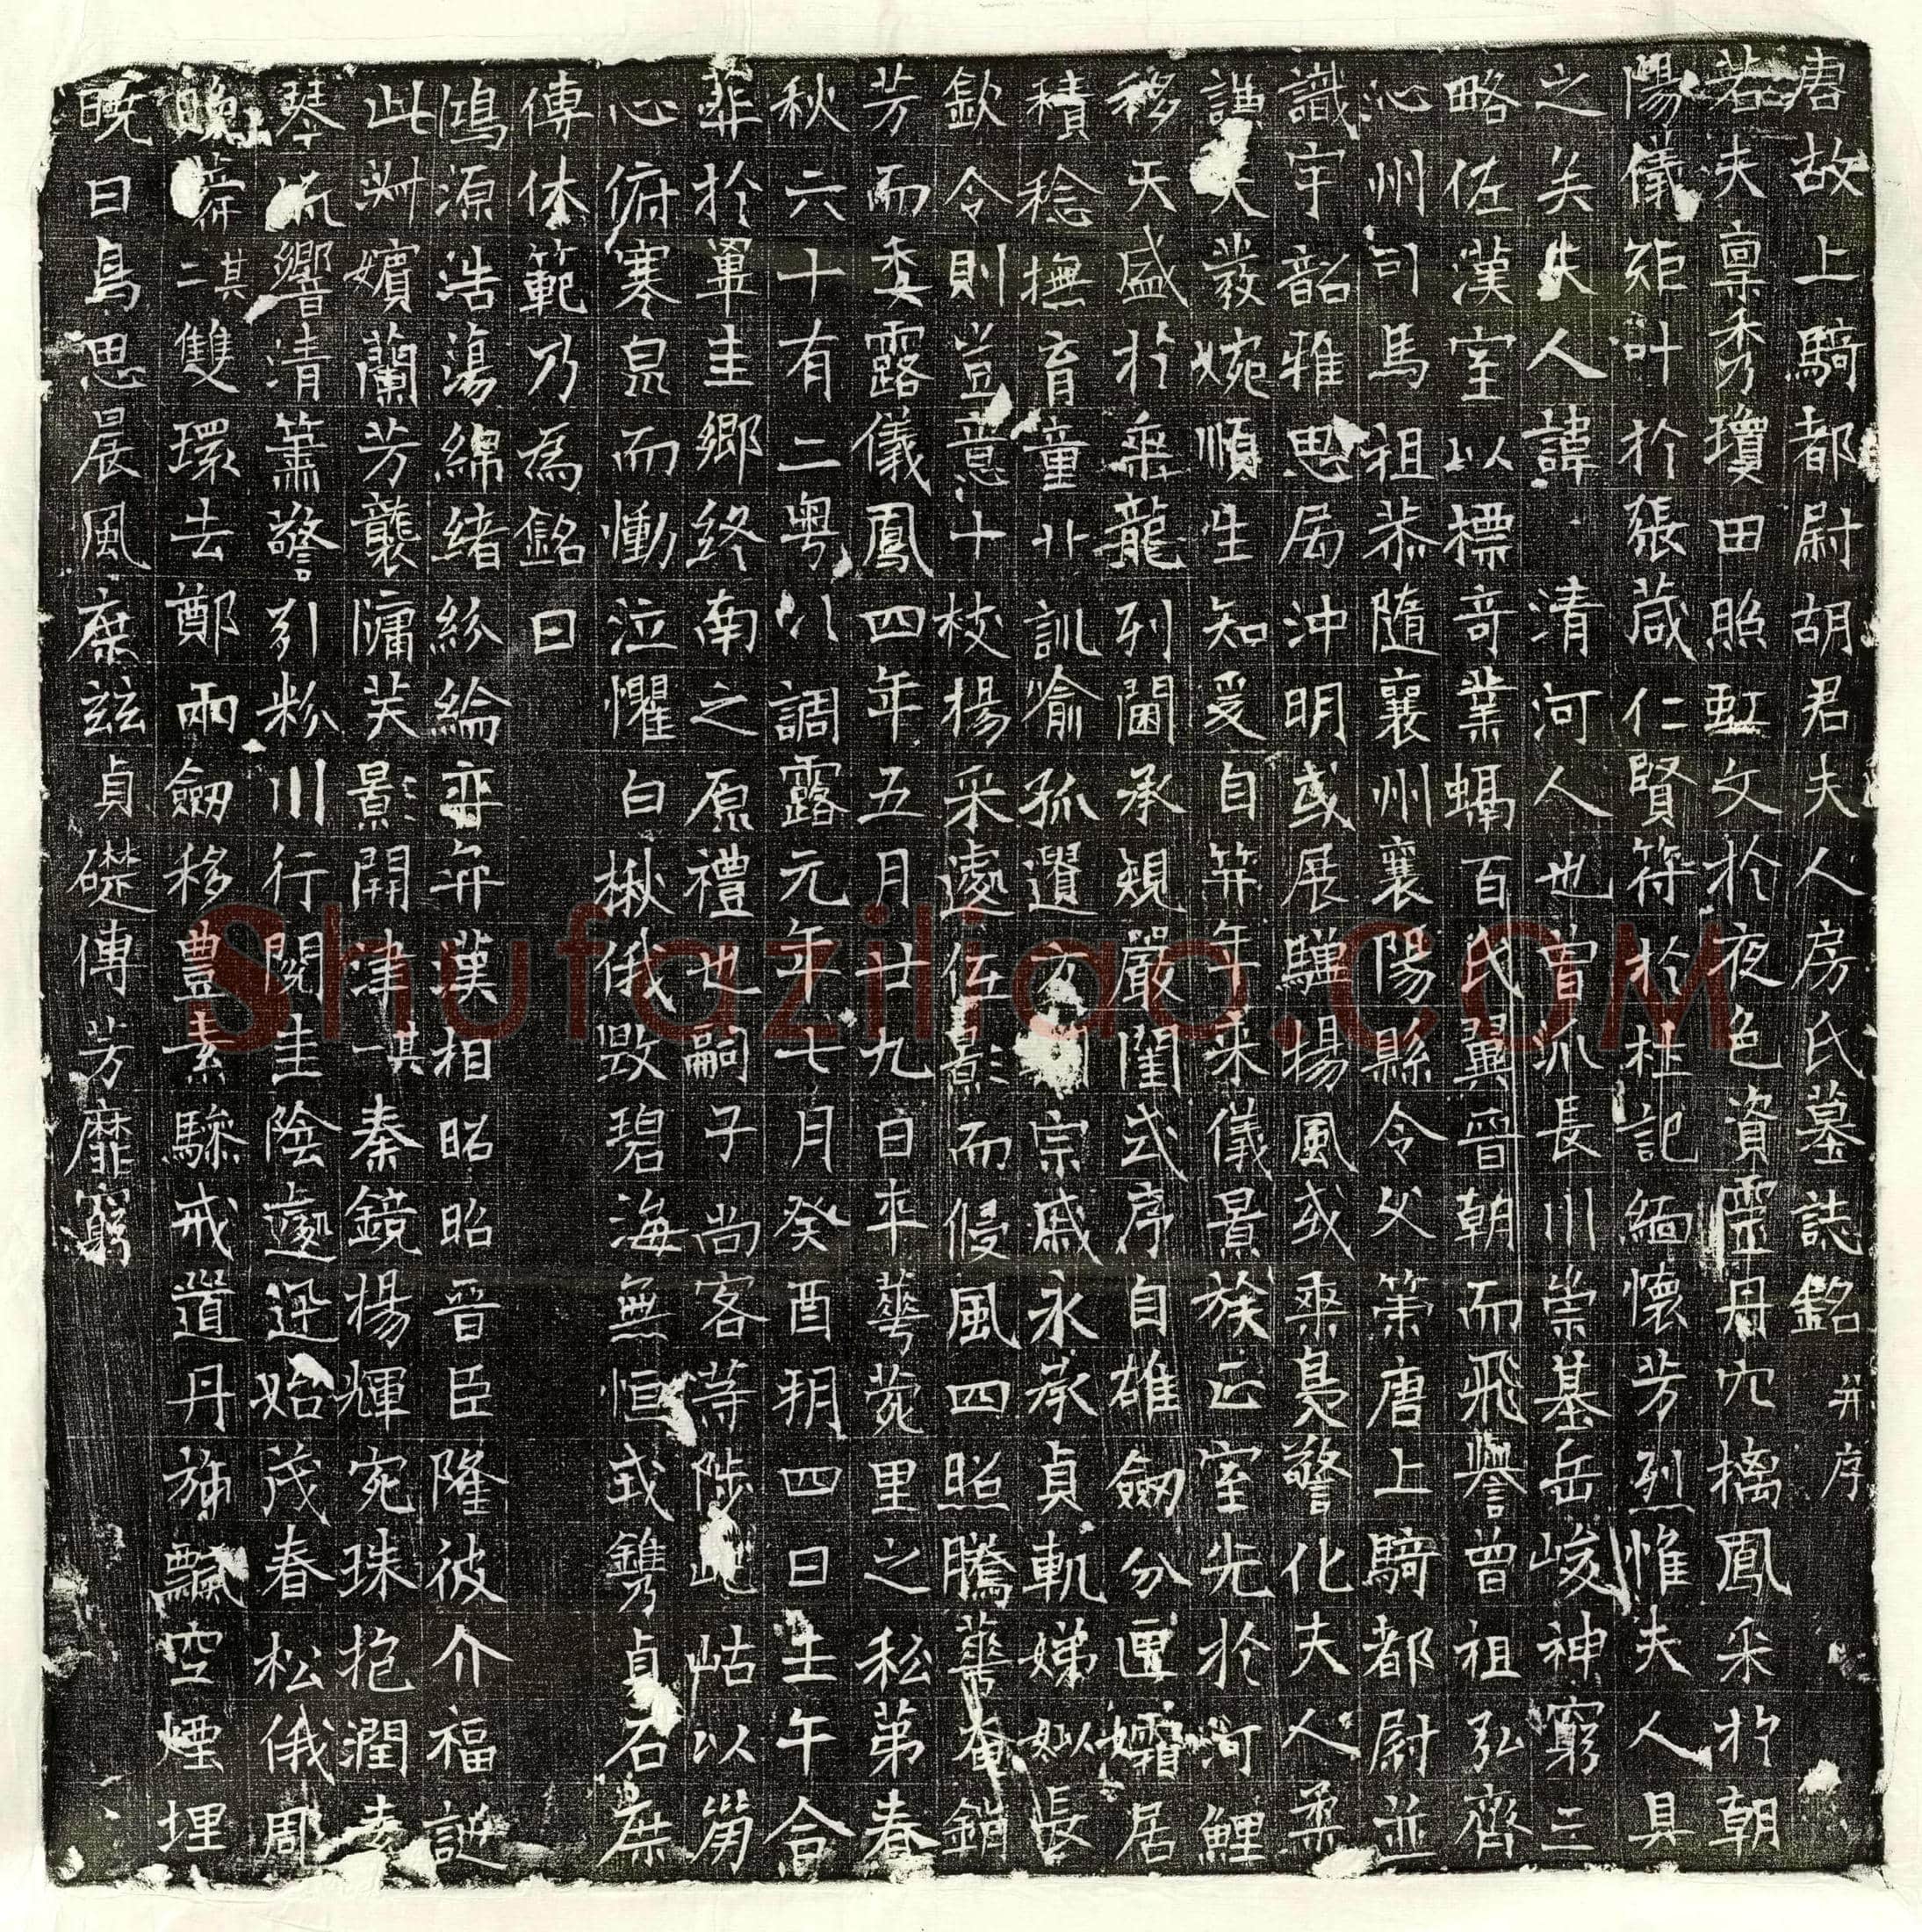 唐故上騎都尉胡君夫人房氏墓誌銘并序
若夫稟秀瓊田照虹文於夜色資靈丹穴摛鳳采於朝
陽儀矩叶於張葴仁賢符於桂記緬懷芳烈惟夫人具
之矣夫人諱清河人也曾派長川崇基岳峻神窮三
略佐漢室以標奇業蝎百氏翼晉朝而飛譽曾祖弘齊
沁州司馬祖恭隨襄州襄陽縣令父策唐上騎都尉並
識宇韶雅思局沖明或展驥揚風或乘鳧警化夫人柔
謙矣發婉順生知爰自笄年來儀景族正室先於河鯉
移天盛於乘龍列閫承規嚴閨式序自雄劒分匣孀居
積稔撫育童丱訓喻孤遺宗戚永承貞軌娣姒長
欽令則豈意十枝揚采遽佐影而侵風四照騰華奄銷
芳而委露儀鳳四年五月廿九日卒華菀里之私第春
秋六十有二粵以調露元年七月癸酉朔四日壬午合
葬於單圭鄉終南之原禮也嗣子尚客等陟屺岵以崩
心俯寒泉而慟泣懼白楸俄毀碧海無恒或鐫貞石庶
傳休範乃為銘曰
鴻源浩蕩綿緒紛綸弈弈漢相昭昭晉臣隆彼介福誕
此淑嬪蘭芳襲牖芙影開津其一秦鏡揚輝宛珠抱潤
琴瑟響清簫警引粉川行閱圭陰遽迅始茂春松俄凋
晚蕣其二雙環去鄭兩劒移豐素驂戒道丹旐飄空煙埋
曉日鳥思晨風庶茲貞礎傳芳靡窮
Shufaziliao.com